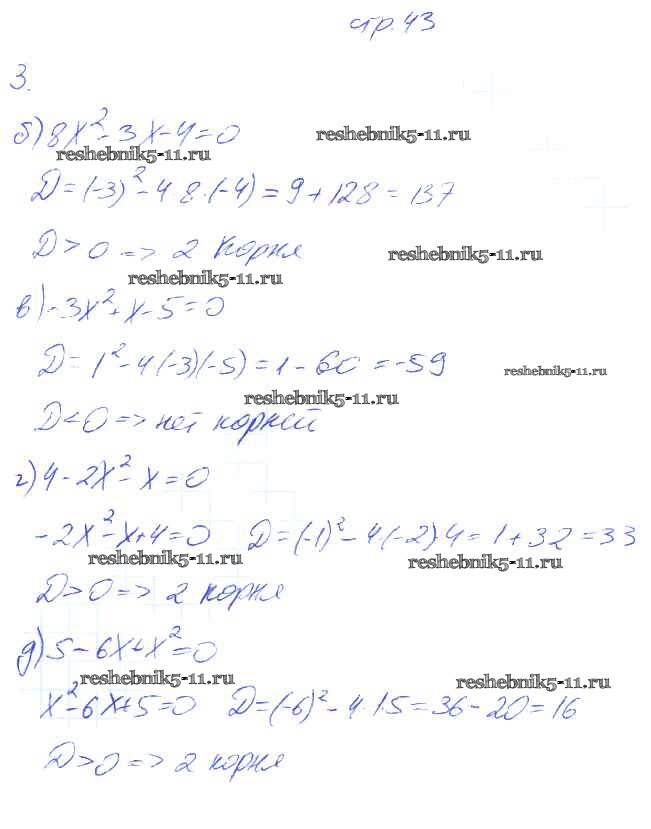 стр. 43
3.
б) 8x² - 3x - 4 = 0
reshebnik5-11.ru
reshebnik5-11.ru
D = (-3)² - 4·8·(-4) = 9 + 128 = 137
D > 0 => 2 корня
reshebnik5-11.ru
reshebnik5-11.ru
в) -3x² + x - 5 = 0
D = 1² - 4·(-3)(-5) = 1 - 60 = -59
reshebnik5-11.ru
reshebnik5-11.ru
D < 0 => нет корней
г) 4 - 2x² - x = 0
-2x² - x + 4 = 0 D = (-1)² - 4·(-2)·4 = 1 + 32 = 33
reshebnik5-11.ru
reshebnik5-11.ru
D > 0 => 2 корня
д) 5 - 6x + x² = 0
reshebnik5-11.ru
reshebnik5-11.ru
x² - 6x + 5 = 0 D = (-6)² - 4·1·5 = 36 - 20 = 16
D > 0 => 2 корня